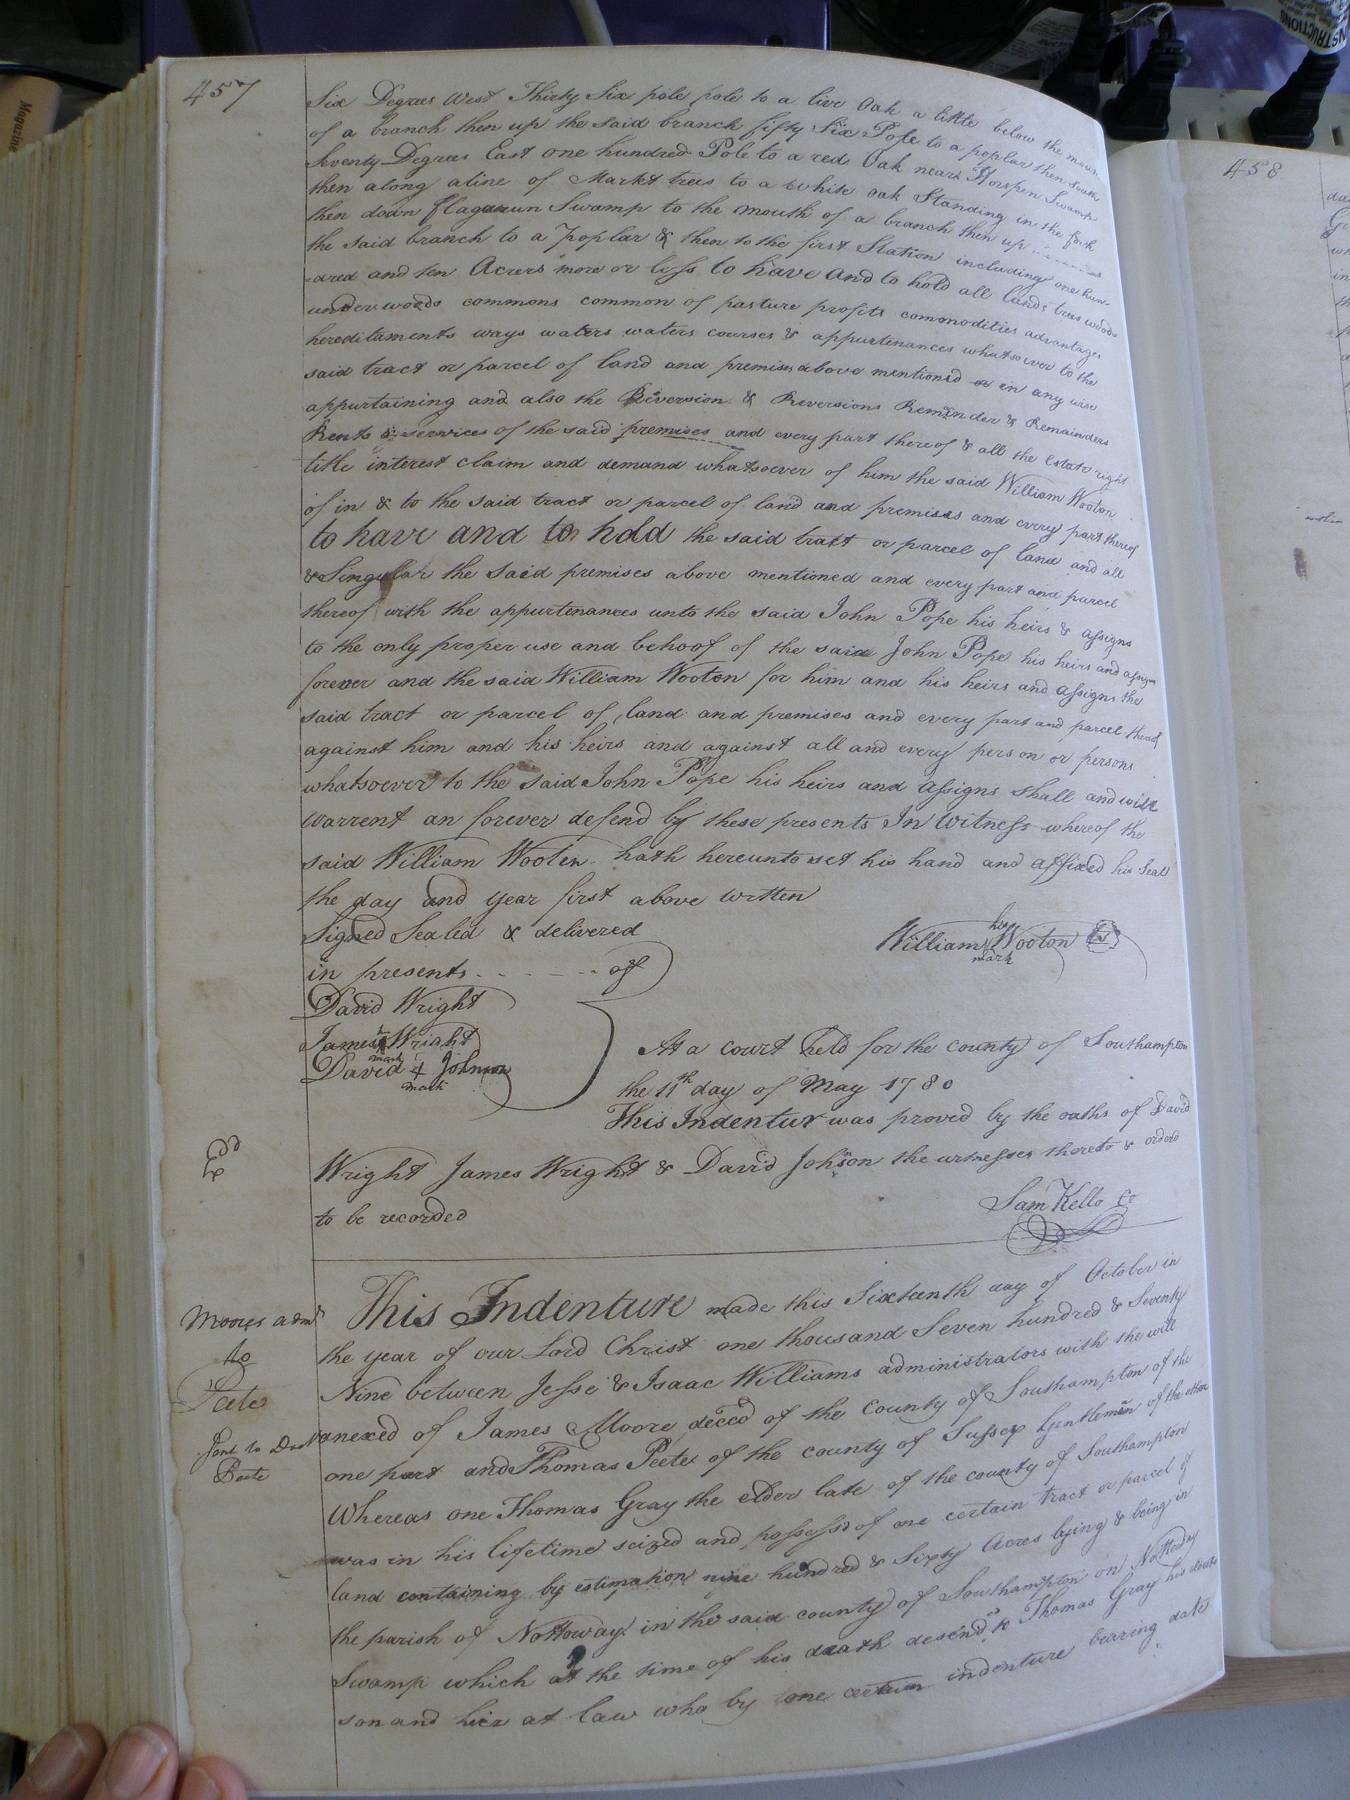 457
Six Degrees West Thirty Six pole pole to a live Oak a little below the mouth
of a branch then up the said branch fifty Six Pole to a poplar then South
Seventy Degrees East one hundred Pole to a red Oak near Horspen Swamp
then along a line of Markt trees to a white oak Standing in the fork
then down flagrun Swamp to the mouth of a branch then up
the said branch to a poplar & then to the first Station including one hun-
-dred and ten Acrers more or less to have and to hold all lands trees woods
underwoods commons common of pasture profits commodities advantages
hereditaments ways waters waters courses & appurtenances whatsoever to the
said tract or parcel of land and premises above mentioned or in any wise
appurtaining and also the Reversion & Reversions Reminder & Remainders
Rents & services of the said premises and every part thereof & all the Estate right
title interest claim and demand whatsoever of him the said William Wooton
of in & to the said tract or parcel of land and premises and every part thereof
to have and to hold the said tract or parcel of land and all
& Singular the Said premises above mentioned and every part and parcel
thereof with the appurtenances unto the said John Pope his heirs & assigns
to the only proper use and behoof of the said John Pope his heirs and assigns
forever and the said William Wooton for him and his heirs and assigns the
said tract or parcel of land and premises and every part and parcel thereof
against him and his heirs and against all and every person or persons
whatsoever to the said John Pope his heirs and assigns shall and will
warrent an forever defend by these presents In Witness whereof the
said William Wooten hath hereunto set his hand and affixed his Seal
the day and year first above written
Signed Sealed & delivered
his
William Wooton
mark
in presents of
David Wright
James Wright
mark
David + Johnson
mark
At a court held for the county of Southampton
the 11th day of May 1780
This Indentur was proved by the oaths of David
Wright James Wright & David Johnson the witnesses thereto & orderd
to be recorded
Sam Kello Cc
Moores adm
to
Peete
This Indenture made this Sixteenth day of October in
the year of our Lord Christ one thousand Seven hundred & Seventy
Nine between Jesse & Isaac Williams administrators with the will
anexed of James Moore deced of the County of Southampton of the
one part and Thomas Peete of the county of Sussex Gentlemen of the other
Whereas one Thomas Gray the elder late of the county of Southampton
was in his lifetime seized and possessd of one certain tract or parcel of
land containing by estimation nine hundred & Sixty Acres lying & being in
the parish of Nottoway in the said county of Southampton on Nottoway
Swamp which at the time of his death desend to Thomas Gray his
son and heir at law who by one certain indenture bearing date
458